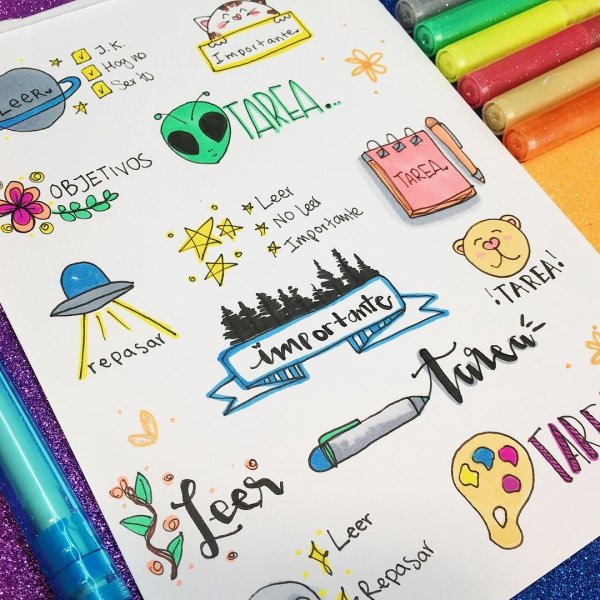 LEER
J.K.
Hoy no
Ser 10
Importante
TAREA...
OBJETIVOS
TAREA
Leer
No leer
Importante
¡TAREA!
repasar
importante
tarea
TAREA
Leer
Leer
Repasar